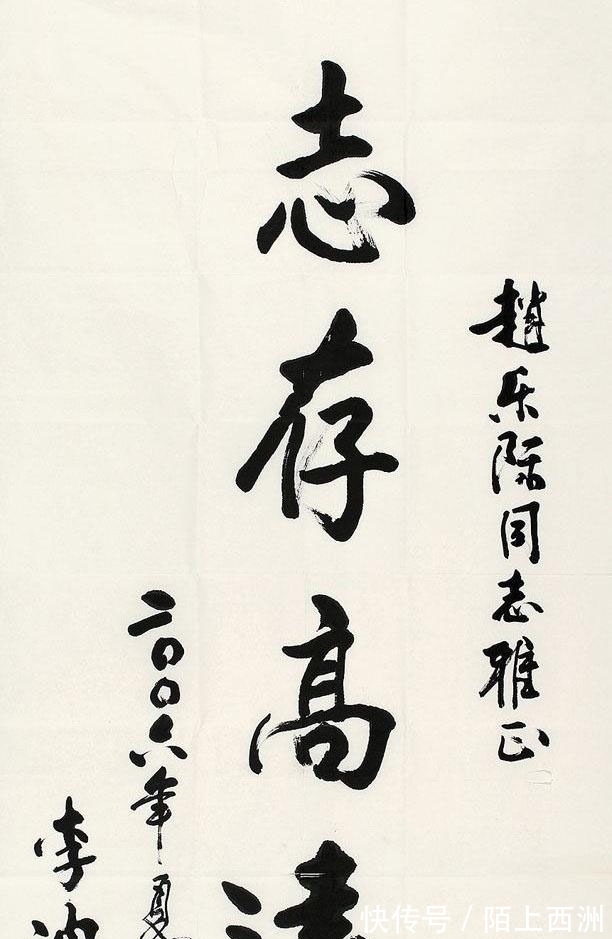 趙乐际同志雅正
志存高
二〇〇六年
李
快传号/陌上西洲